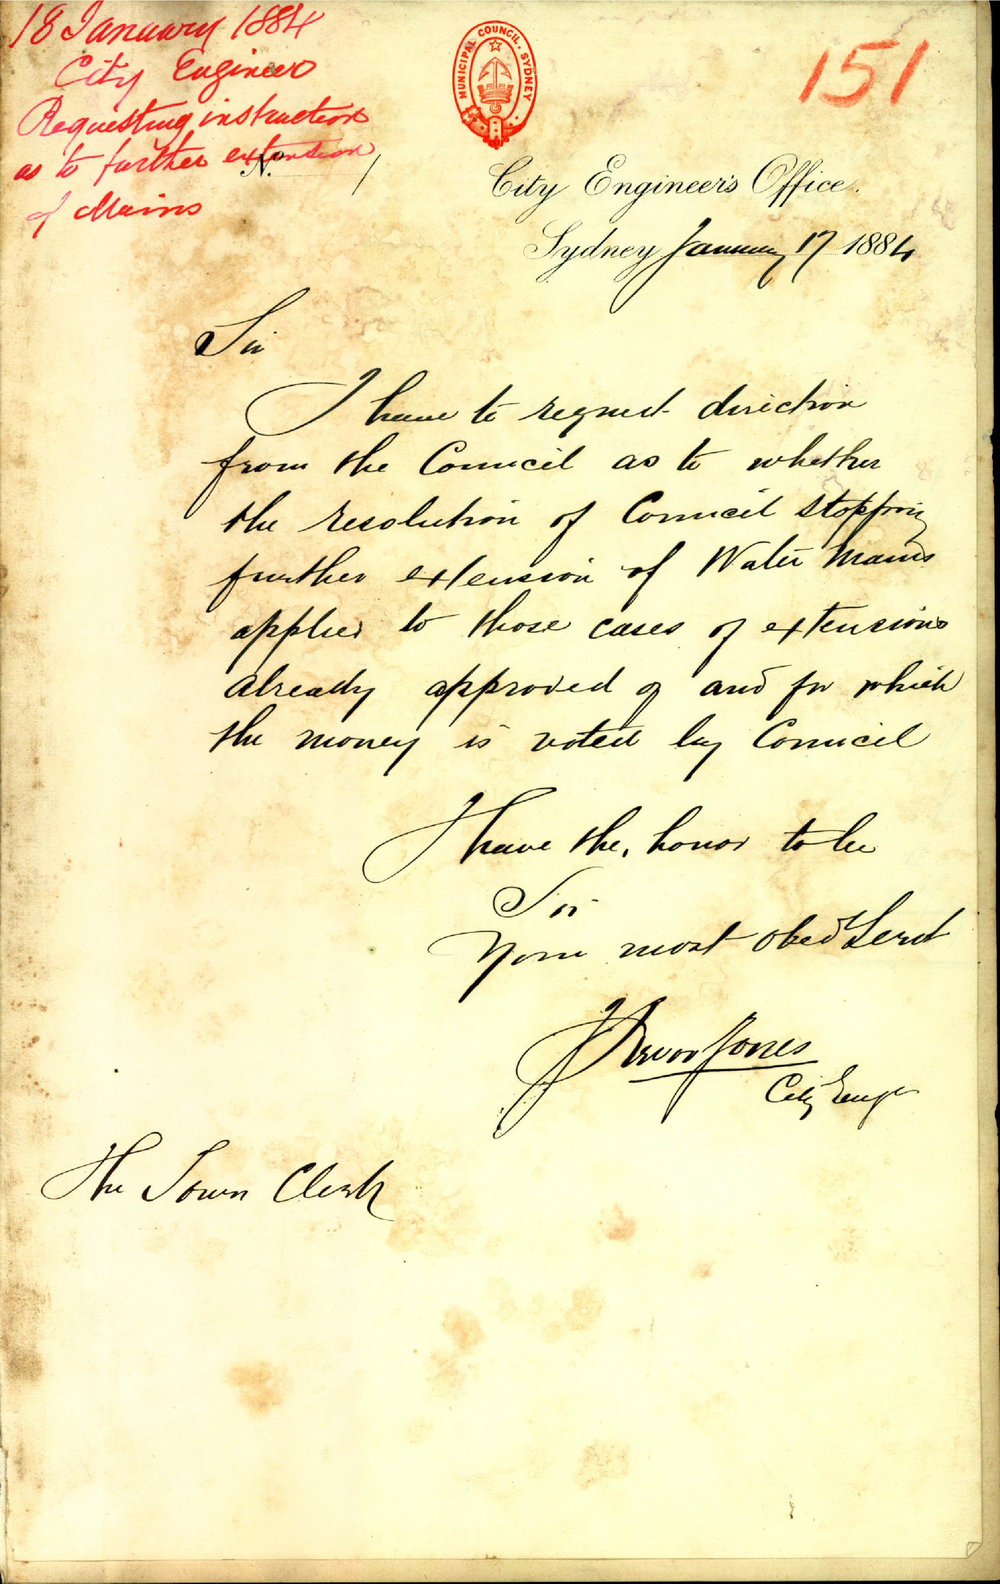 18 January 1884
City Engineer
Requesting instruction
as to further extension
of Mains
MUNICIPAL COUNCIL. SYDNEY
151
No. /
City Engineer's Office.
Sydney January 17 1884
Sir
I have to request direction
from the Council as to whether
the resolution of Council stopping
further extension of Water Mains
applies to those cases of extensions
already approved of and for which
the money is voted by Council
I have the honor to be
Sir
Your most obedt Servt
J Trevor Jones
City Engr
The Town Clerk